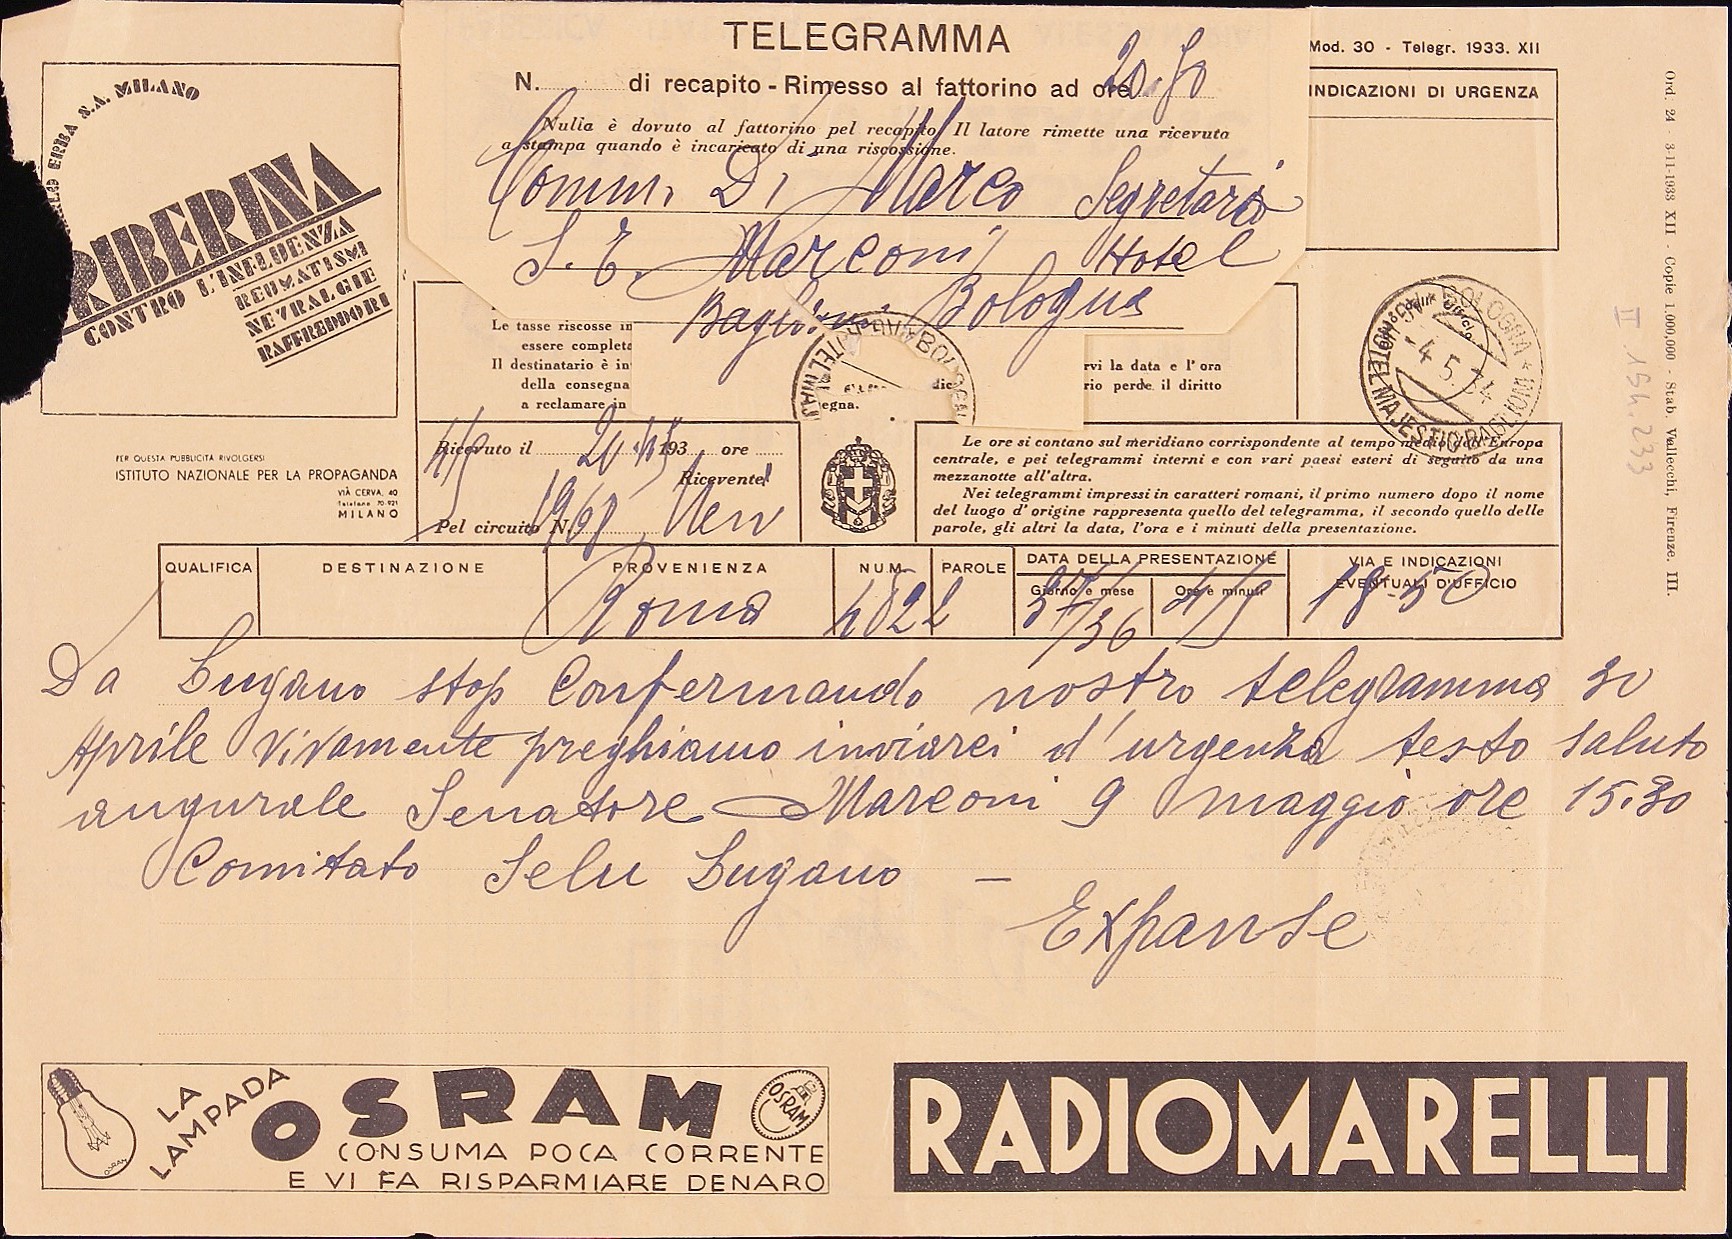 TELEGRAMMA
Mod. 30 - Telegr. 1933. XII
N. di recapito - Rimesso al fattorino ad ore 20.50
INDICAZIONI DI URGENZA
Nulla è dovuto al fattorino pel recapito. Il latore rimette una ricevuta
a stampa quando è incaricato di una riscossione.
Comm. Di Marco Segretario
S. E. Marconi Hotel
Baglioni Bologna
ERBA S.A. MILANO
RIBERINA
CONTRO L'INFLUENZA
REUMATISMI
NEVRALGIE
RAFFREDDORI
PER QUESTA PUBBLICITÀ RIVOLGERSI
ISTITUTO NAZIONALE PER LA PROPAGANDA
VIA CERVA, 40
Telefono 70-921
MILANO
Le tasse riscosse in
essere completa
Il destinatario è in
della consegna
a reclamare in
rvi la data e l'ora
rio perde il diritto
egna.
BOLOGNA
HOTEL MAJESTIC BAGLIONI
-4.5.34
Ricevuto il 193 ore
Ricevente
Pel circuito N.
Le ore si contano sul meridiano corrispondente al tempo medio dell'Europa
centrale, e pei telegrammi interni e con vari paesi esteri di seguito da una
mezzanotte all'altra.
Nei telegrammi impressi in caratteri romani, il primo numero dopo il nome
del luogo d'origine rappresenta quello del telegramma, il secondo quello delle
parole, gli altri la data, l'ora e i minuti della presentazione.
QUALIFICA DESTINAZIONE PROVENIENZA NUM. PAROLE DATA DELLA PRESENTAZIONE VIA E INDICAZIONI
Giorno e mese Ore e minuti EVENTUALI D'UFFICIO
Roma 4/5 18-50
Da Lugano stop Confermando nostro telegramma 30
Aprile vivamente preghiamo inviarci d'urgenza testo saluto
augurale Senatore Marconi 9 maggio ore 15.30
Comitato Selu Lugano —
Expanse
Ord. 24 - 3-11-1933 XII - Copie 1.000.000 - Stab. Vallecchi, Firenze. III.
II 194.233
LA LAMPADA
OSRAM
OSRAM
OSRAM
CONSUMA POCA CORRENTE
E VI FA RISPARMIARE DENARO
RADIOMARELLI